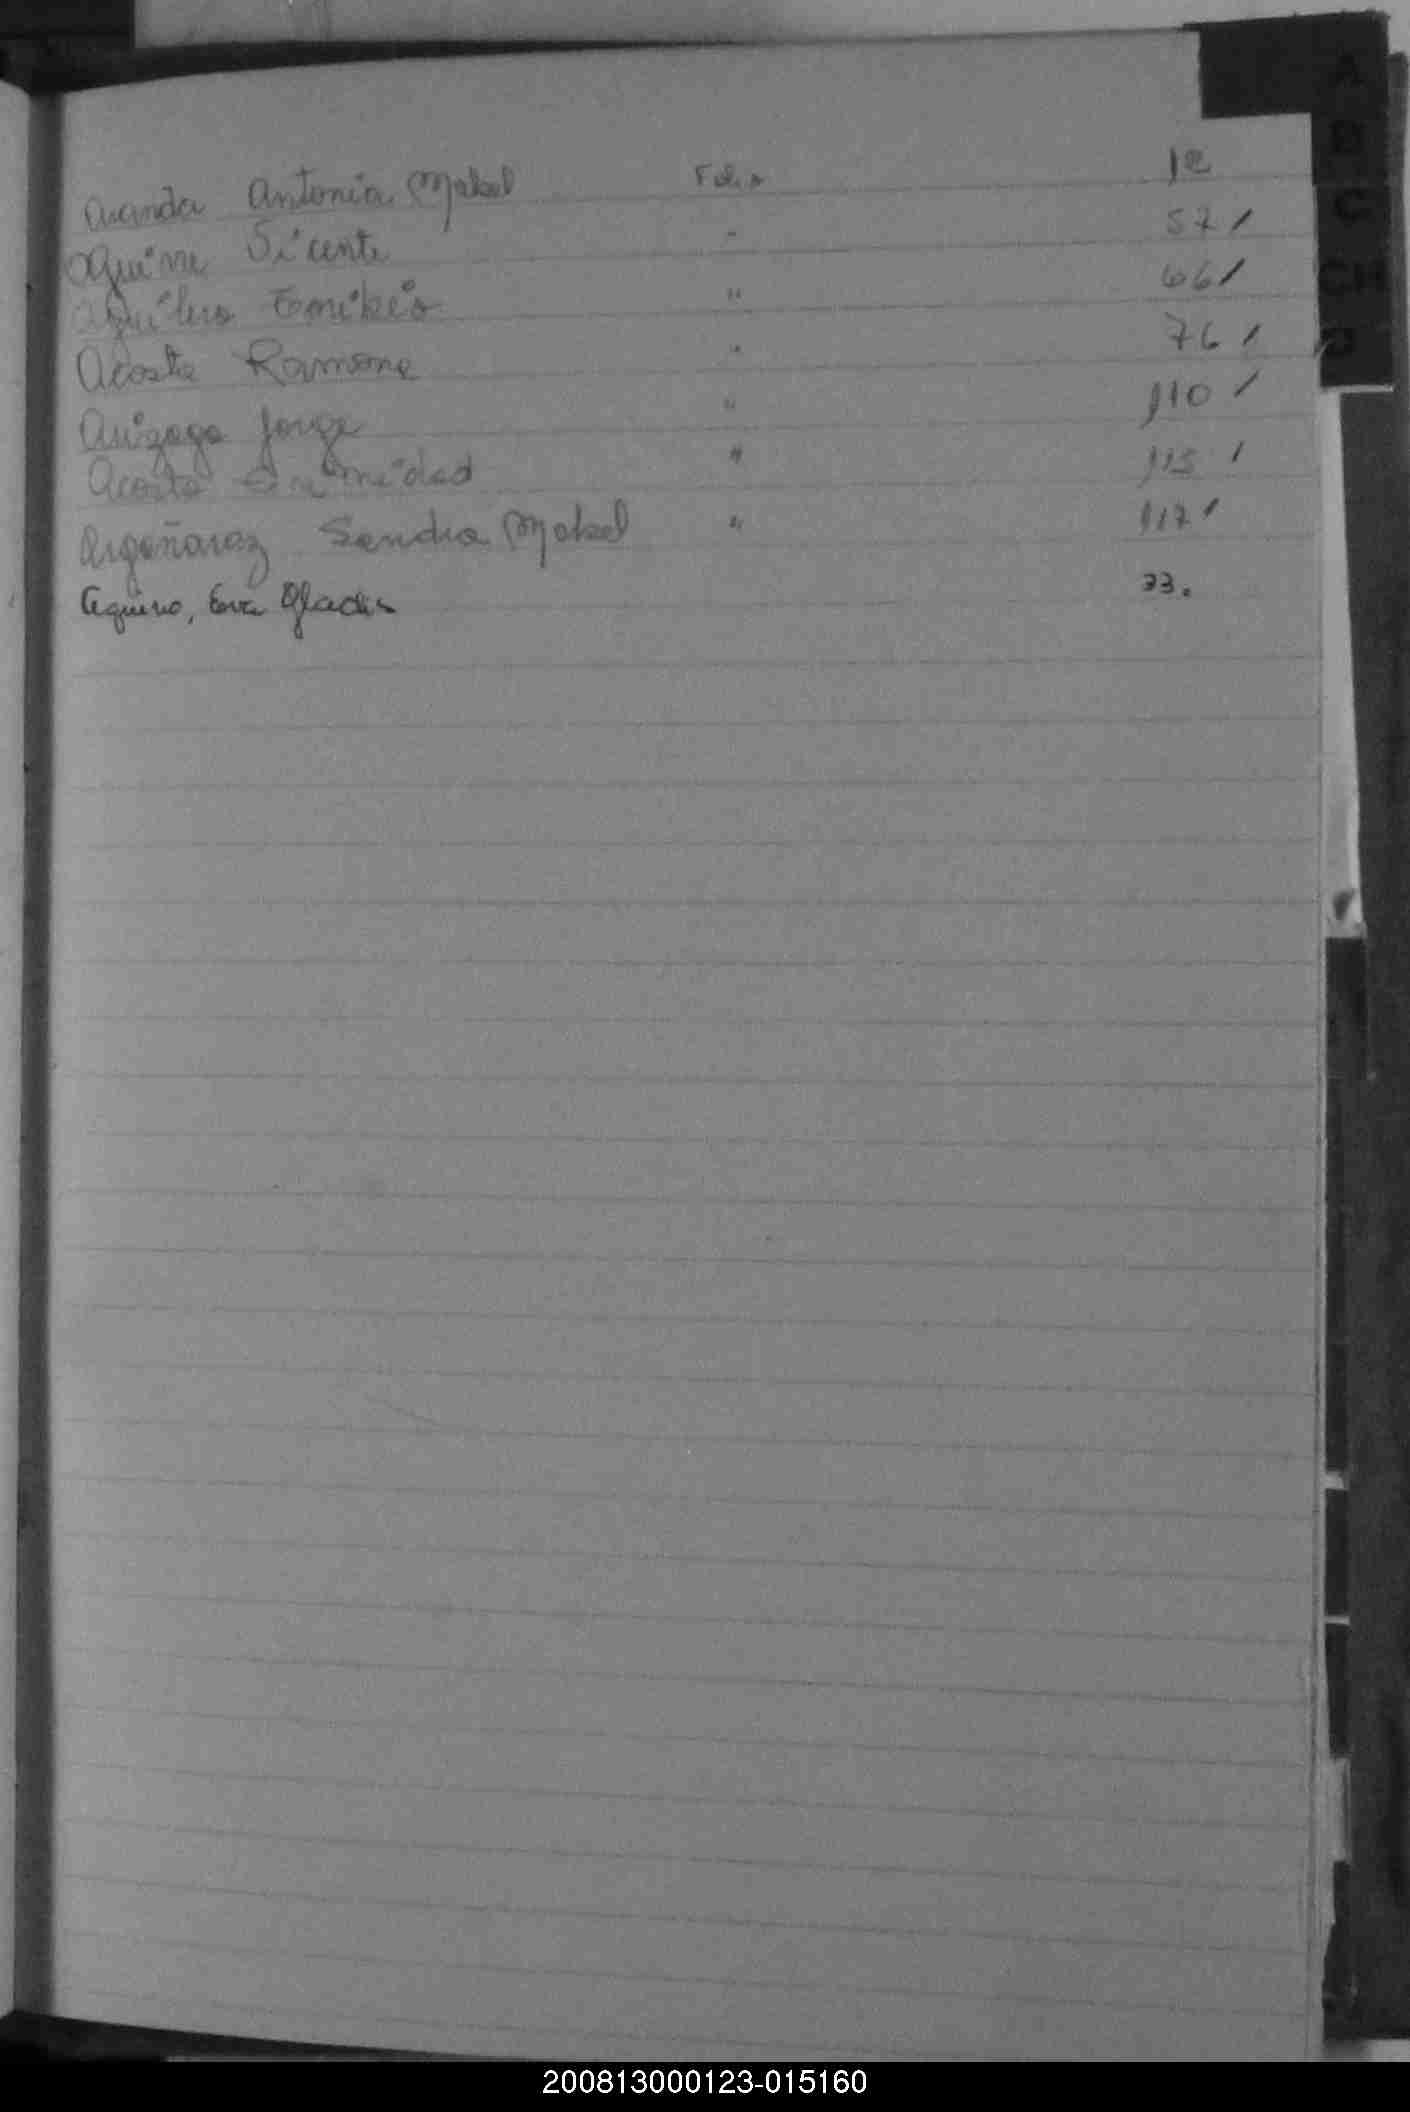 Aranda Antonia Mabel Folio 12
Aquine Vicente " 57 /
Aguilera " 66 /
Acosta Ramona " 76 /
Arizaga Jorge " 110 /
Acosta " 115 /
Argañaraz Sandra Mabel " 117 /
Aquino, Eva Gladis 33.
A
B
C
CH
D
200813000123-015160